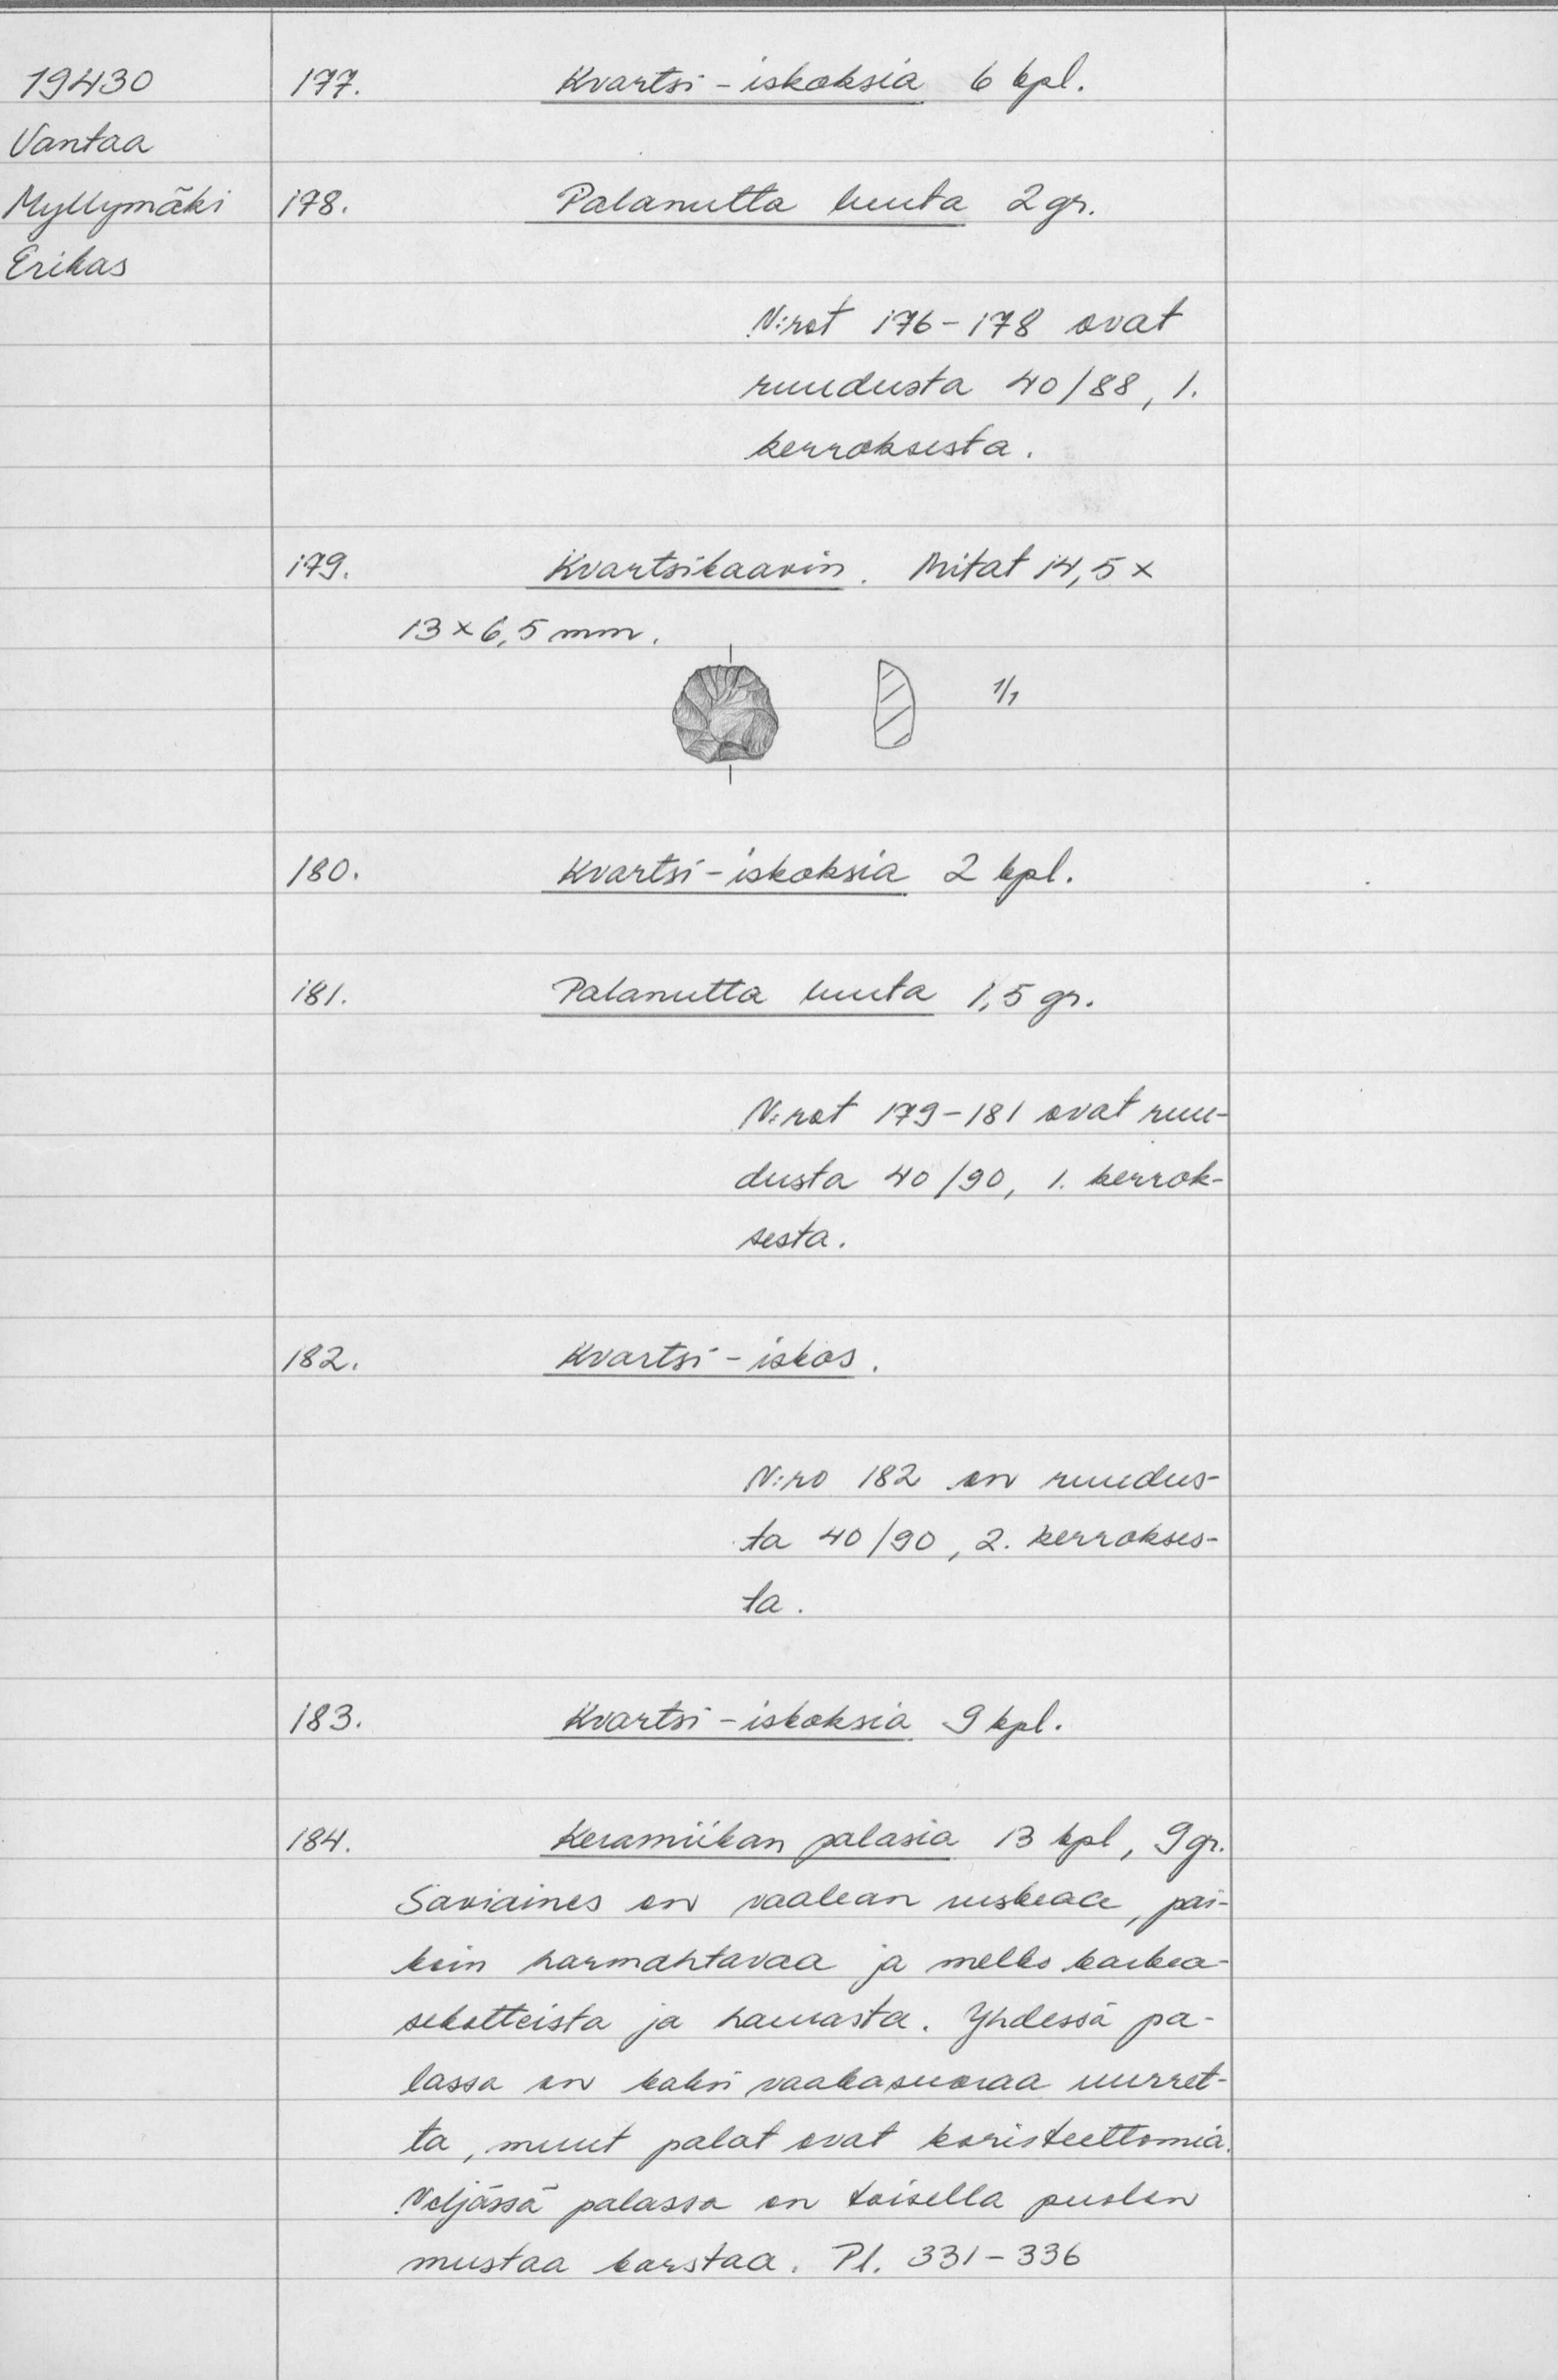 19430
Vantaa
Myllymäki
Erikas
177. Kvartsi-iskoksia 6 kpl.
178. Palanutta luuta 2 gr.
N:rot 176-178 ovat
ruudusta 40/88, 1.
kerroksesta.
179. Kvartsikaavin. Mitat 14,5 x
13 x 6,5 mm.
1/1
180. Kvartsi-iskoksia 2 kpl.
181. Palanutta luuta 1,5 gr.
N:rot 179-181 ovat ruu-
dusta 40/90, 1. kerrok-
sesta.
182. Kvartsi-iskos.
N:ro 182 on ruudus-
ta 40/90, 2. kerrokses-
ta.
183. Kvartsi-iskoksia 9 kpl.
184. Keramiikan palasia 13 kpl, 9 gr.
Saviaines on vaalean ruskeaa, pai-
koin harmahtavaa ja melko karkea-
sekotteista ja haurasta. Yhdessä pa-
lassa on kaksi vaakasuoraa uurret-
ta, muut palat ovat koristeettomia.
Neljässä palassa on toisella puolen
mustaa karstaa. Pl. 331-336